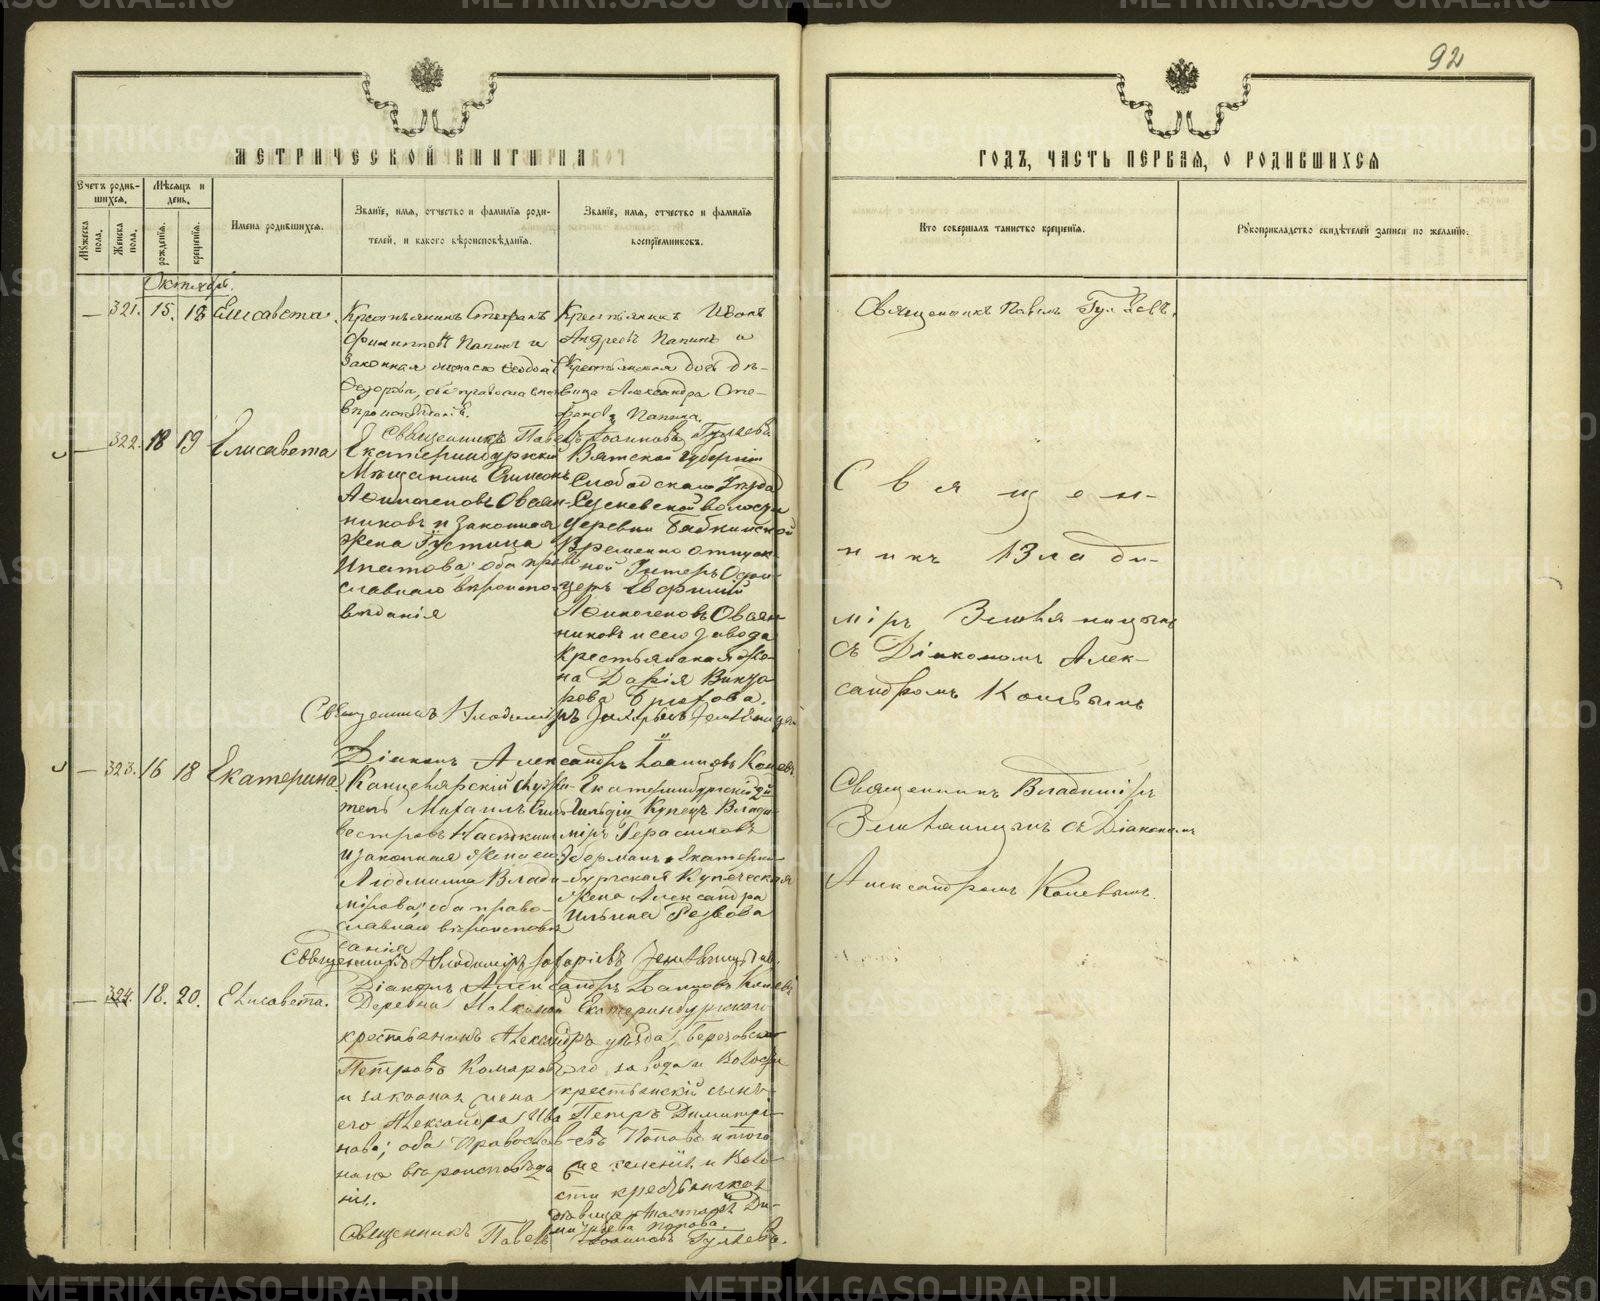 92
МЕТРИЧЕСКОЙ КНИГИ НА
ГОДЪ, ЧАСТЬ ПЕРВАЯ, О РОДИВШИХСЯ
Счетъ родив-
шихся.
Мѣсяцъ и
день.
Мужеска
пола.
Женска
пола.
рожденія.
крещенія.
Имена родившихся.
Званіе, имя, отчество и фамилія роди-
телей, и какого вѣроисповѣданія.
Званіе, имя, отчество и фамилія
воспріемниковъ.
Кто совершалъ таинство крещенія.
Рукоприкладство свидѣтелей записи по желанію.
Октябрь.
— 321. 15. 18 Елисавета.
Крестьянинъ Стефанъ
Филипповъ Папинъ и
законная жена его
Феодорова, оба православнаго
вѣроисповѣданія.
Крестьянинъ Иванъ
Андреевъ Папинъ и
Крестьянская дочь дѣ-
вица Александра Сте-
фанова Папина.
Священникъ Павелъ Гуляевъ.
Священникъ Павелъ Іоанновъ Гуляевъ
— 322. 18 19 Елисавета
Екатеринбургскій
Мѣщанинъ Симеонъ
Афиногеновъ Овсян-
никовъ и законная
жена Іустина
Ипатова, оба право
славнаго вѣроиспо-
вѣданія
Вятской губерніи
Слободскаго уѣзда
волости
деревни
Временно отпуск
ной Унтеръ Офи-
церъ Евфимій
Афиногеновъ Овсян
никовъ и сего завода
крестьянская же-
на Дарія Викто
рова
Священ-
никъ Влади-
міръ Земляницынъ
съ Діакономъ Алек-
сандромъ Коневымъ
Священникъ Владиміръ Земляницынъ
Діаконъ Александръ Іоанновъ Коневъ
— 323. 16 18 Екатерина
Канцелярскій служи-
тель Михаилъ Силь-
вестровъ Насѣдкинъ
и законная жена его
Людмилла Влади-
мірова; оба право-
славнаго вѣроисповѣ
данія
Екатеринбургскій 2й
гильдіи Купецъ Влади-
міръ Герасимовъ
Екатерин-
бургская Купеческая
жена Александра
Ильина Рязанова
Священникъ Владиміръ
Земляницынъ съ Діакономъ
Александромъ Коневымъ.
Священникъ Владиміръ Захаріевъ Земляницынъ
Діаконъ Александръ Іоанновъ Коневъ
— 324. 18. 20. Елисавета.
Деревни
крестьянинъ Александръ
Петровъ Комаровъ
и законная жена
его Александра Ива
нова; оба Православ-
наго вѣроисповѣда
нія.
Екатеринбургскаго
уѣзда, Березовска
го завода и волости
крестьянскій сынъ
Петръ Димитрі-
евъ Поповъ и того
же селенія и воло
сти крестьянская
дѣвица Анастасія Ди-
митріева Попова.
Священникъ Павелъ Іоанновъ Гуляевъ.
METRIKI.GASO-URAL.RU